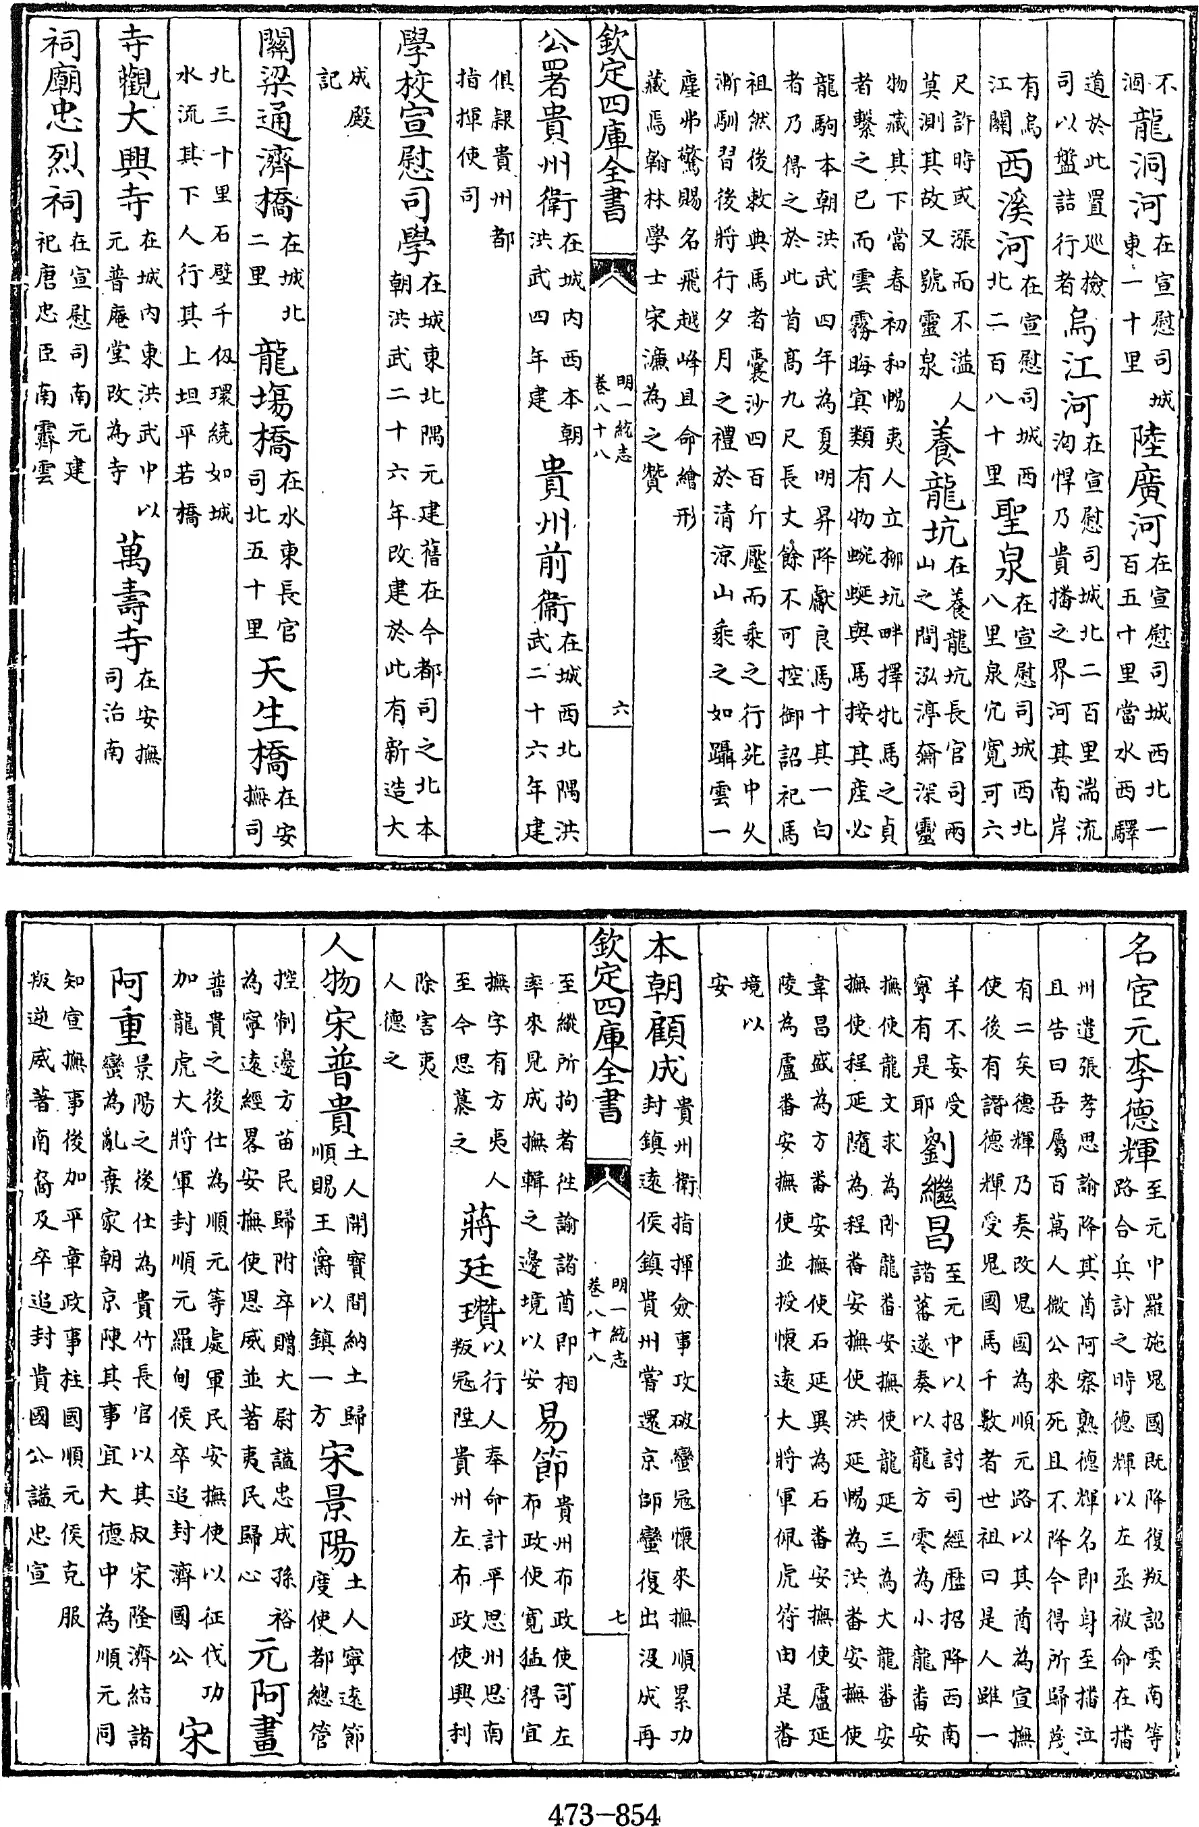 不涸龍洞河在宣慰司城東一十里陸廣河在宣慰司城西北一百五十里當水西驛
道於此置巡檢司以盤詰行者烏江河在宣慰司城北二百里湍流洶悍乃貴播之界河其南岸
有烏江關西溪河在宣慰司城西北二百八十里聖泉在宣慰司城西北八里泉穴寬可六
尺許時或漲而不溢人莫測其故又號靈泉養龍坑在養龍坑長官司兩山之間泓渟齋深靈
物藏其下當春初和暢夷人立柳坑畔擇牝馬之貞者繫之已而雲霧晦冥類有物蜿蜒與馬接其產必
龍駒本朝洪武四年為夏明昇降獻良馬十其一白者乃得之於此首高九尺長丈餘不可控御詔祀馬
祖然後敕典馬者囊沙四百斤壓而乘之行苑中久漸馴習後將行夕月之禮於清涼山乘之如躡雲一
塵弗驚賜名飛越峰且命繪形藏焉翰林學士宋濂為之贊
欽定四庫全書 明一統志卷八十八 六
公署貴州衛在城內西本朝洪武四年建貴州前衛在城西北隅洪武二十六年建
俱隸貴州都指揮使司
學校宣慰司學在城東北隅元建舊在今都司之北本朝洪武二十六年改建於此有新造大
成殿記
關梁通濟橋在城北二里龍塲橋在水東長官司北五十里天生橋在安撫司
北三十里石壁千仭環繞如城水流其下人行其上坦平若橋
寺觀大興寺在城內東洪武中以元普庵堂改為寺萬壽寺在安撫司治南
祠廟忠烈祠在宣慰司南元建祀唐忠臣南霽雲
名宦元李德輝至元中羅施鬼國既降復叛詔雲南等路合兵討之時德輝以左丞被命在播
州遣張孝思諭降其酋阿察熟德輝名即身至播泣且告曰吾屬百萬人微公來死且不降今得所歸蔑
有二矣德輝乃奏改鬼國為順元路以其酋為宣撫使後有譖德輝受鬼國馬千數者世祖曰是人雖一
羊不妄受寧有是耶劉繼昌至元中以招討司經歷招降西南諸蕃遂奏以龍方零為小龍畨安
撫使龍文求為卧龍畨安撫使龍延三為大龍畨安撫使程延隨為程畨安撫使洪延暢為洪畨安撫使
韋昌盛為方畨安撫使石延異為石畨安撫使盧延陵為盧畨安撫使並授懷逺大將軍佩虎符由是畨
境以安
本朝顧成貴州衛指揮僉事攻破蠻冦懷來撫順累功封鎮逺侯鎮貴州嘗還京師蠻復出沒成再
欽定四庫全書 明一統志卷八十八 七
至縱所拘者徃諭諸酋即相率來見成撫輯之邊境以安易節貴州布政使司左布政使寛猛得宜
撫字有方夷人至今思慕之蔣廷瓚以行人奉命計平思州思南叛冦陞貴州左布政使興利
除害夷人德之
人物宋普貴土人開寳間納土歸順賜王爵以鎮一方宋景陽土人寧逺節度使都總管
控制邊方苗民歸附卒贈大尉諡忠成孫裕為寧逺經畧安撫使恩威並著夷民歸心元阿畫
普貴之後仕為順元等處軍民安撫使以征伐功加龍虎大將軍封順元羅甸侯卒追封濟國公宋
阿重景陽之後仕為貴竹長官以其叔宋隆濟結諸蠻為亂棄家朝京陳其事宜大德中為順元同
知宣撫事後加平章政事柱國順元侯克服叛逆威著南裔及卒追封貴國公諡忠宣
473-854